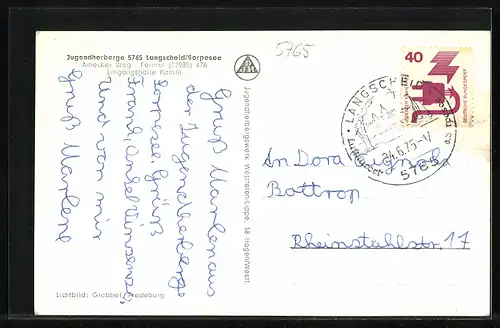 Jugendherberge 5765 Langscheid/Sorpesee
Amecker Weg · Fernruf (02935) 476
Eingangshalle Kamin
5765
Gruß Marlen aus
der Jugendherberge
Sorpesee. Grüß
und von mir
Gruß Marlene
Lichtbild: Grobbel, Fredeburg
Jugendherbergswerk Westfalen-Lippe, 58 Hagen/Westf.
40
DEUTSCHE BUNDESPOST
LANGSCHEID
Luftkurort
24.6.75-17
5768
An Dora
Bottrop
Rheinstahlstr. 17